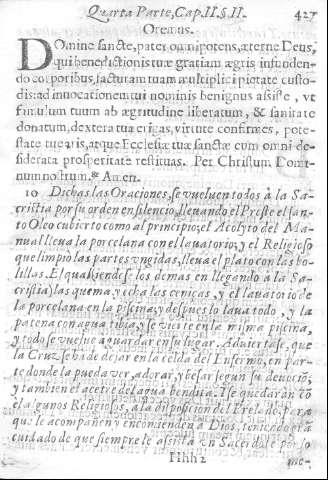 Quarta Parte, Cap. II. §. II.
427
Oremus.
DOmine sancte, pater omnipotens, æterne Deus,
qui benedictionis tuæ gratiam ægris infunden-
do corporibus, facturam tuam multiplici pietate custo-
dis: ad invocationem tui nominis benignus assiste, vt
famulum tuum ab ægritudine liberatum, & sanitate
donatum, dextera tua erigas, virtute confirmes, pote-
state tuearis, atque Ecclesiæ tuæ sanctæ cum omni de-
siderata prosperitate restituas. Per Christum Domi-
num nostrum. ℟. Amen.
10 Dichas las Oraciones, se vuelven todos à la Sa-
cristia por su orden en silencio, llevando el Preste el san-
to Oleo cubierto como al principio; el Acolyto del Ma-
nual lleva la porcelana con el lavatorio; y el Religioso
que limpiò las partes vngidas, lleva el plato con las bo-
lillas. El qual (yendose los demas en llegando à la Sa-
cristia) las quema, y echa las cenizas, y el lavatorio de
la porcelana en la piscina; y despues lo lava todo, y la
patena con agua tibia, y se vierte en la misma piscina,
y todo se vuelve a guardar en su lugar. Adviertase, que
la Cruz se ha de dejar en la celda del Enfermo, en par-
te donde la pueda ver, adorar, y besar segun su devociõ;
y tambien el acetre del agua bendita. Y se quedaràn cõ
èl algunos Religiosos, a la disposicion del Prelado, para
que le acompañen y encomienden a Dios, teniendo gra
cuidado de que siempre le assista vn Sacerdote por lo
Hhh2